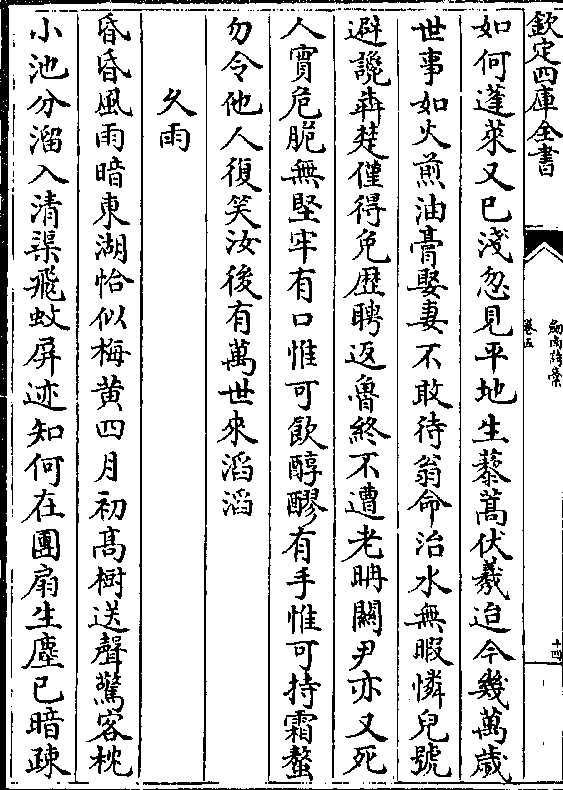 欽定四庫全書
劍南詩稾
卷五
十四
如何蓬萊又已淺忽見平地生藜蒿伏羲迨今幾萬歲
世事如火煎油膏娶妻不敢待翁命治水無暇憐兒號
避讒奔楚僅得免歴聘返魯終不遭老聃關尹亦又死
人實危脆無堅牢有口惟可飲醇醪有手惟可持霜螯
勿令他人復笑汝後有萬世來滔滔
久雨
昏昏風雨暗東湖恰似梅黄四月初髙樹送聲驚客枕
小池分溜入清渠飛蚊屏迹知何在團扇生塵已暗踈